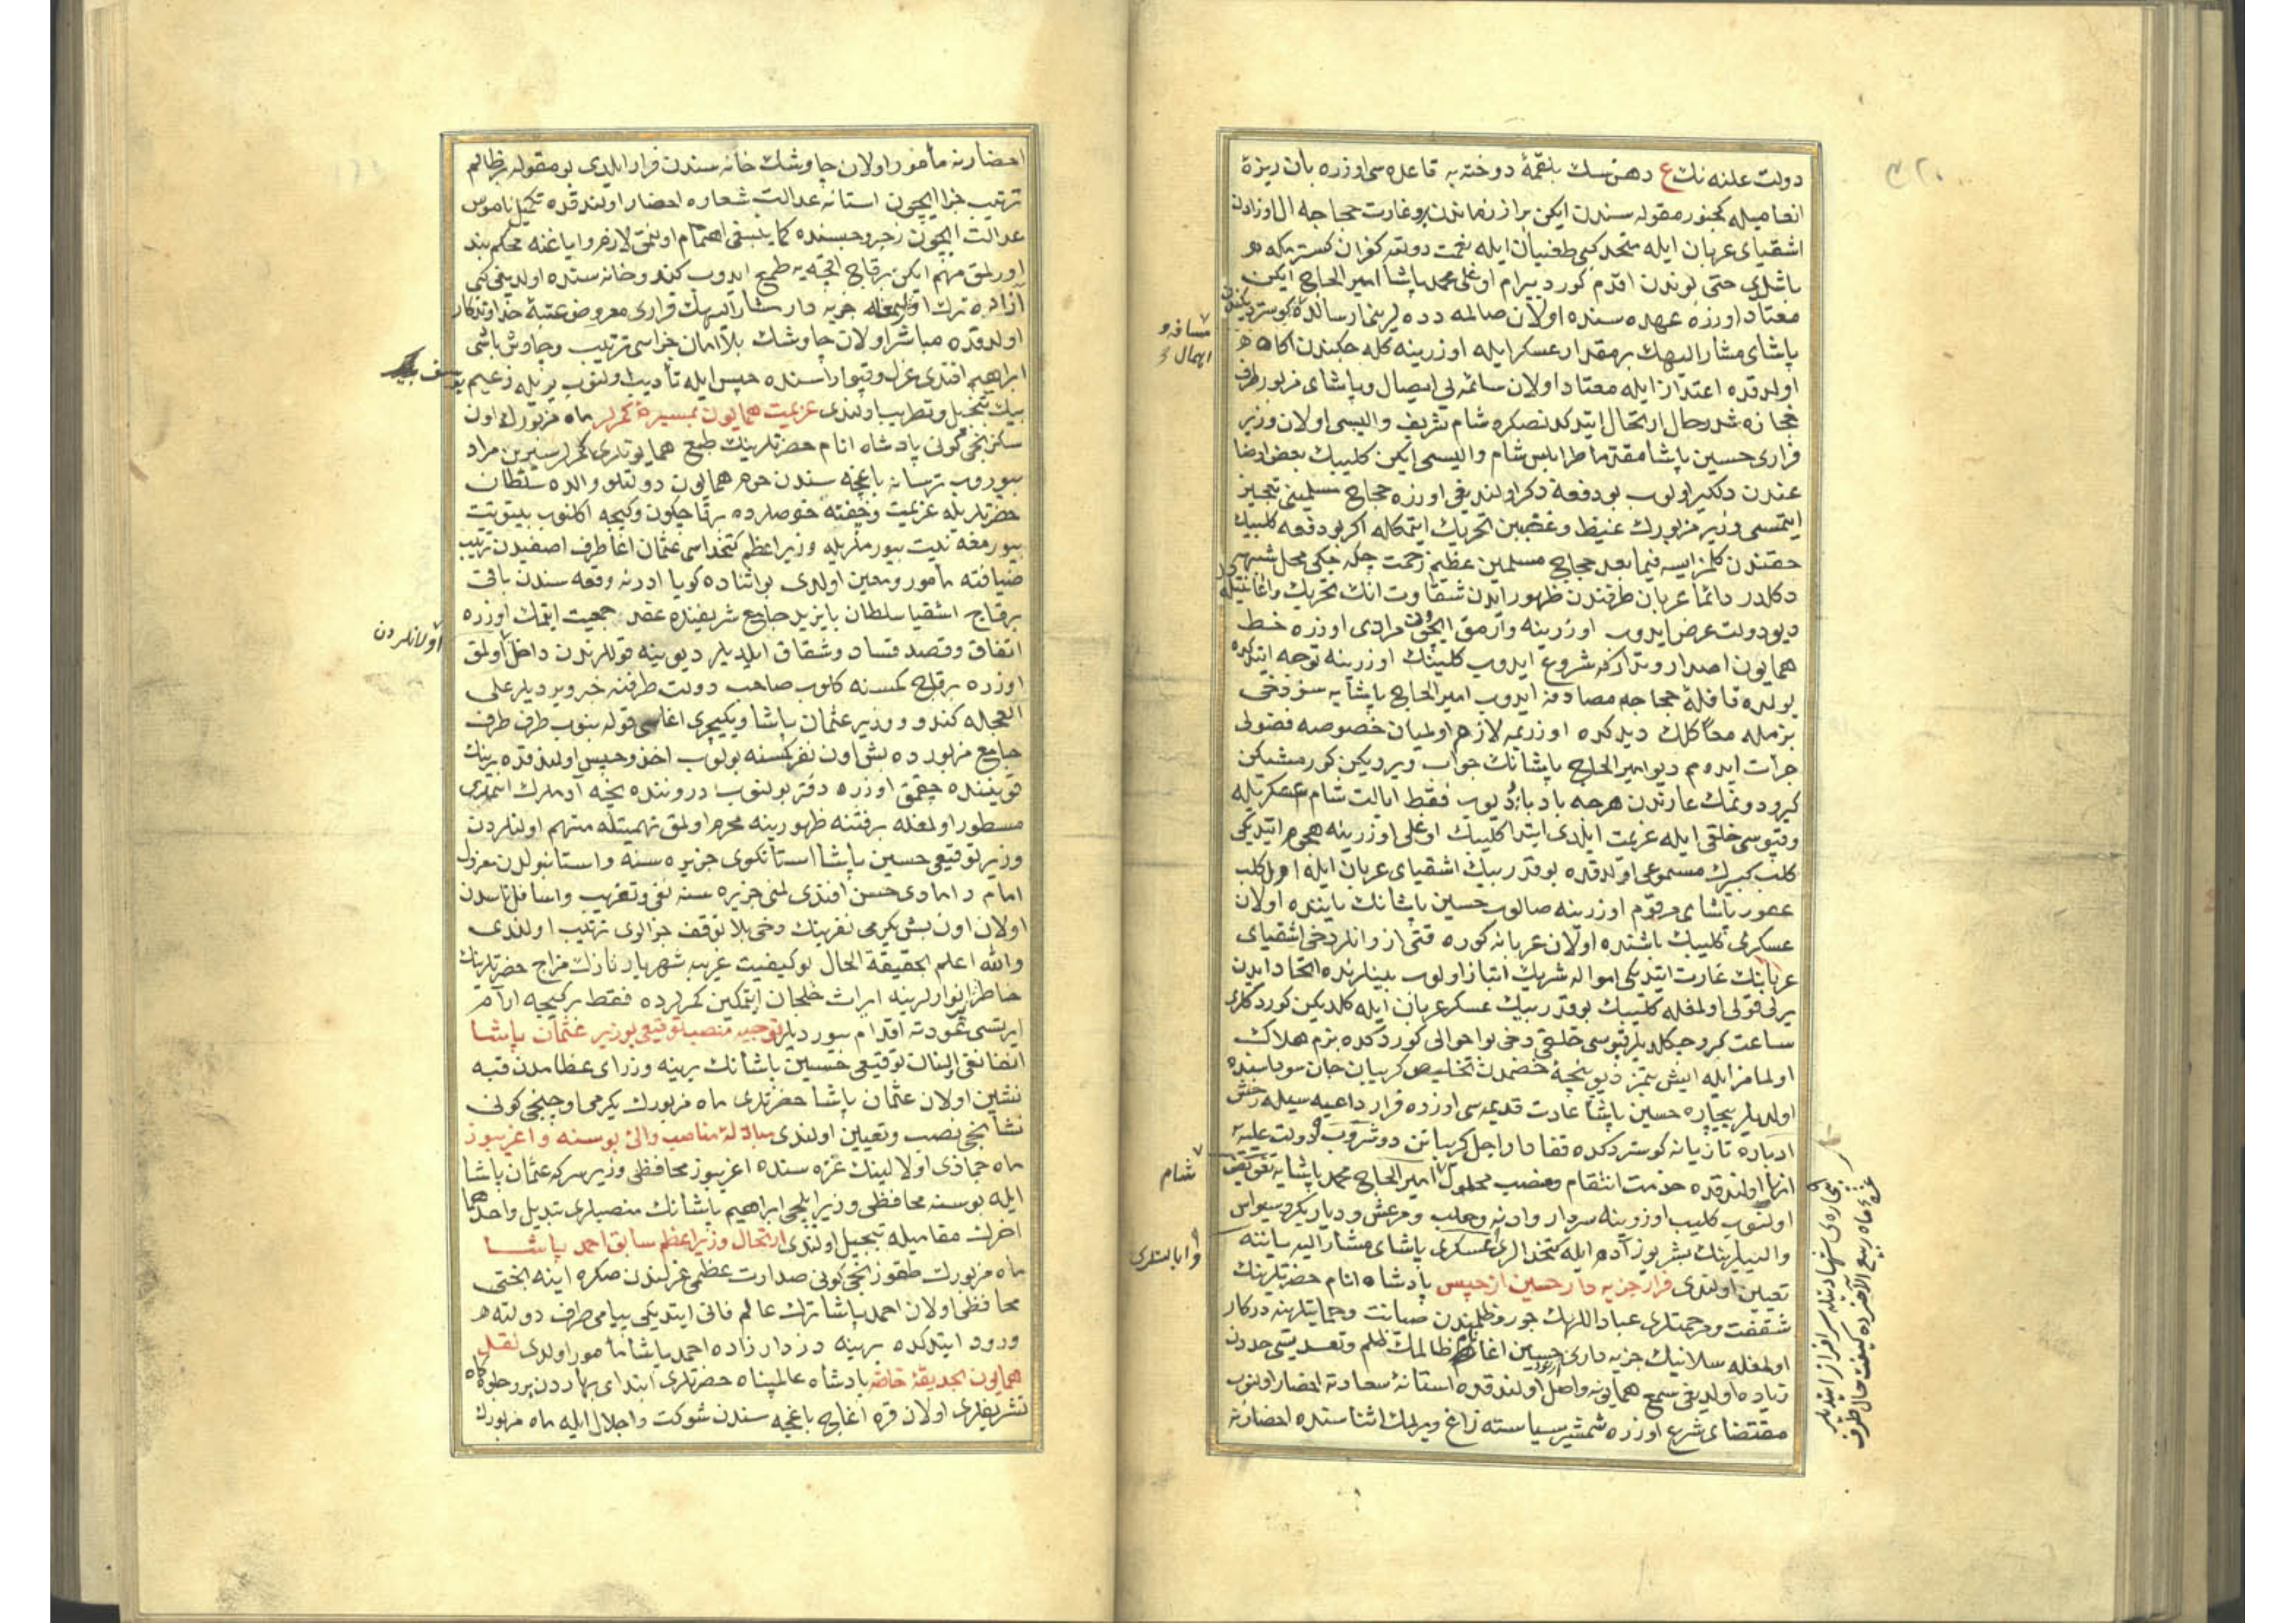 دولت علنه نك ع دهن سك بلقمۀ دوخته به قاعده سی اوزره بان ریزۀ
انعامیله کجنور مقوله سندن ایکن براز زماندن برو غارت حجاجه ال اوزادن
اشقیای عربان ایله متحد کبی طغیان ایله نعمت دولته کفران کسترمکه
باشلدی حتی بوندن اقدم کورد بیرام اوغلی محمد پاشا امیر الحاج ایکن
معتاد اوزره عهده سنده اولان صالمه ده
پاشای مشار الیهك بر مقدار عسکر ایله اوزرینه کله جکندن اکاه
اولدقده اعتذار ایله معتاد اولان سائمه لی ایصال و پاشای مزبور طرف
حجازه شد رحال ارتحال ایتدکدنصکره شام شریف والیسی اولان وزیر
فراری حسین پاشا مقدما طرابلس شام والیسی ایکن کلیبك بعض اوضا
عندن دلکیر اولوب بو دفعه ذکر اولندیغی اوزره حجاج مسلمینی تجهیز
ایتمسی وزیر مزبورك غیظ و غضبین تحریك ایتمکله اکر بو دفعه کلیبك
حقندن کلمز ایسه فیما بعد حجاج مسلمین عظیم زحمت چکه جکی محل شبهه
دکلدر دائما عربان طرفندن ظهور ایدن شقاوت انك تحریك و اغا
دیو دولته عرض ایدوب اوزرینه وارمق ایچون مرادی اوزره خط
همایون اصدار و تدارکه شروع ایدوب کلیبك اوزرینه توجه ایتدکده
یولده قافلۀ حجاجه مصادفه ایدوب امیر الحاج پاشایه سز دخی
بزمله معا کلك دیدکده اوزریمه لازم اولمیان خصوصه فضولی
جرات ایده مم دیو امیر الحاج پاشانك جواب ویردیکن کورمشیکن
کیرو دونمك عارندن هر چه باد باد دیوب فقط ایالت شام عسکریله
و قپوسی خلقی ایله عزیمت ایلدی ابتدا کلیبك اوغلی اوزرینه هجوم ایتدیکی
کلب کبیرك مسموعی اولدقده بو قدر بیك اشقیای عربان ایله
عقور پاشای مرقوم اوزرینه صالوب حسین پاشانك یاننده اولان
عسکرمی کلیبك باشنده اولان عربانه کوره قتی از وانلر دخی اشقیای
عربانك غارت ایتدیکی امواله شریك انباز اولوب بینلرنده اتحاد ایدن
یرلی قولی اولمغله کلیبك بو قدر بیك عسکر عربان ایله کلدیکین کوردکلری
ساعت کیرو چکلدیلر قپوسی خلقی دخی بو احوالی کوردکده بزم هلاك
اولمامز ایله ایش بتمز دیو پنجۀ خصمدن تخلیص کریبان جان
اولدیلر بیچاره حسین پاشا عادت قدیمه سی اوزره فرار داعیه سیله رخش
ادباره تازیانه کوستردکده قفادار اجل کریبانن
انها اولندقده خدمت انتقام و منصب محلول امیر الحاج محمد پاشایه تفویض
اولنوب کلیب اوزرینه سردار و ادنه و حلب و مرعش و دیاربکر و سیواس
والیلرینك بشر یوز آدم ایله کتخدالری عسکری پاشای مشار الیه یاننه
تعیین اولندی فرار جزیه دار حسین از حبس پادشاه انام حضرتلرینك
شفقت و مرحمتلری عباد اللهك جور و ظلمندن صیانت و حمایتلرینه درکار
اولمغله سلانیك جزیه داری حسین اغا ظالمك ظلم و تعدیسی حددن
زیاده اولدیغی سمع همایونه واصل اولندقده استانۀ سعادته احضار اولنوب
مقتضای شرع اوزره شمشیر سیاسته زاغ ویرلمك اثناسنده احضارنه
مسافه و
اهمال
شام
و ایالتلری
احضارنه مأمور اولان چاوشك خانه سندن فرار ایلدی بو مقوله بر ظالم
ترتیب جزا ایچون استانۀ عدالت شعاره احضار اولندقده تکمیل ناموس
عدالت ایچون زجر و حبسنده کما ینبغی اهتمام اولنمق لازم و ایاغنه محکم بند
اورلمق مهم ایکن برقاج اقچه یه طمع ایدوب کندو خانه سنده اولدیغی کبی
آزاده ترك اولنمغله جزیه دار مشار الیهك فراری معروض عتبۀ خداوندکار
اولدقده مباشر اولان چاوشك بلا امان جزاسی ترتیب و چاوش باشی
ابراهیم افندی عزل و تیمار اسنده حبس ایله تأدیب اولنوب یریله زعیم یوسف
بیك تبجیل و تطییب اولندی عزیمت همایون بمسیرۀ کمرلر ماه مزبورك اون
سکزنجی کونی پادشاه انام حضرتلرینك طبع همایونلری کمرلر سیرین مراد
بیوروب ترسانه باغچه سندن حرم همایون دولتلو والده سلطان
حضرتلریله عزیمت و چفته حوضلرده برقاچ کون و کیجه اکلنوب بیتوتت
بیورمغه نیت بیورملریله وزیر اعظم کتخداسی عثمان اغا طرف اصفیدن ترتیب
ضیافته مأمور و معین اولدی بو اثناده کویا ادرنه وقعه سندن باقی
برقاچ اشقیا سلطان بایزید جامع شریفنده عقد جمعیت ایتمك اوزره
اتفاق و قصد فساد و شقاق ایلدیلر دیو ینه قوللرندن داخل اولمق
اوزره برقاچ کمسنه کلوب صاحب دولت طرفنه خبر ویردیلر علی
العجاله کندو و وزیر عثمان پاشا و یکیچری اغاسی قوله بنوب طرف طرف
جامع مزبورده بش اون نفر کمسنه بولوب اخذ و حبس اولندقده برینك
قوینندن چقمق اوزره دفتر بولنوب دروننده نیجه آدملرك اسملری
مسطور اولمغله بر فتنه ظهورینه محرم اولمق تهمتیله متهم اولنلردن
وزیر توقیعی حسین پاشا استانکوی جزیره سنه و استانبولدن معزول
امام دامادی حسن افندی لمنی جزیره سنه نفی و تغریب و اسافل ناسدن
اولان اون بش یکرمی نفرینك دخی بلا توقف جزالری ترتیب اولندی
والله اعلم بحقیقة الحال بو کیفیت غریبه شهریار نازك مزاج حضرتلرینك
خاطر انوارلرینه ایراث خلجان ایتمکین کمرلرده فقط بر کیجه آرام
ایرتسی عودته اقدام بیوردیلر توجیه منصب توقیعی بوزیر عثمان پاشا
انفا نفی اولنان توقیعی حسین پاشانك یرینه وزرای عظامدن قبه
نشین اولان عثمان پاشا حضرتلری ماه مزبورك یکرمی اوچنجی کونی
نشانجی نصب و تعیین اولندی مبادلۀ مناصب والئ بوسنه و اغریبوز
ماه جماذی الاولینك غره سنده اغریبوز محافظی وزیر سرکه عثمان پاشا
ایله بوسنه محافظی وزیر ایلچی ابراهیم پاشانك منصبلری تبدیل و احدهما
اخرك مقامیله تبجیل اولندی ارتحال وزیر اعظم سابق احمد پاشا
ماه مزبورك طقوزنجی کونی صدارت عظمی عزلندن صکره اینه بختی
محافظی اولان احمد پاشا ترك عالم فانی ایتدیکی پیامی طرف دولته
ورود ایتدکده یرینه دزدار زاده احمد پاشا مأمور اولدی نقل
همایون بحدیقۀ خاصه پادشاه عالمپناه حضرتلری ابتدای بهاردن برو جلوه کاه
تشریفلری اولان قره اغاج باغچه سندن شوکت و اجلال ایله ماه مزبورك
اولانلردن